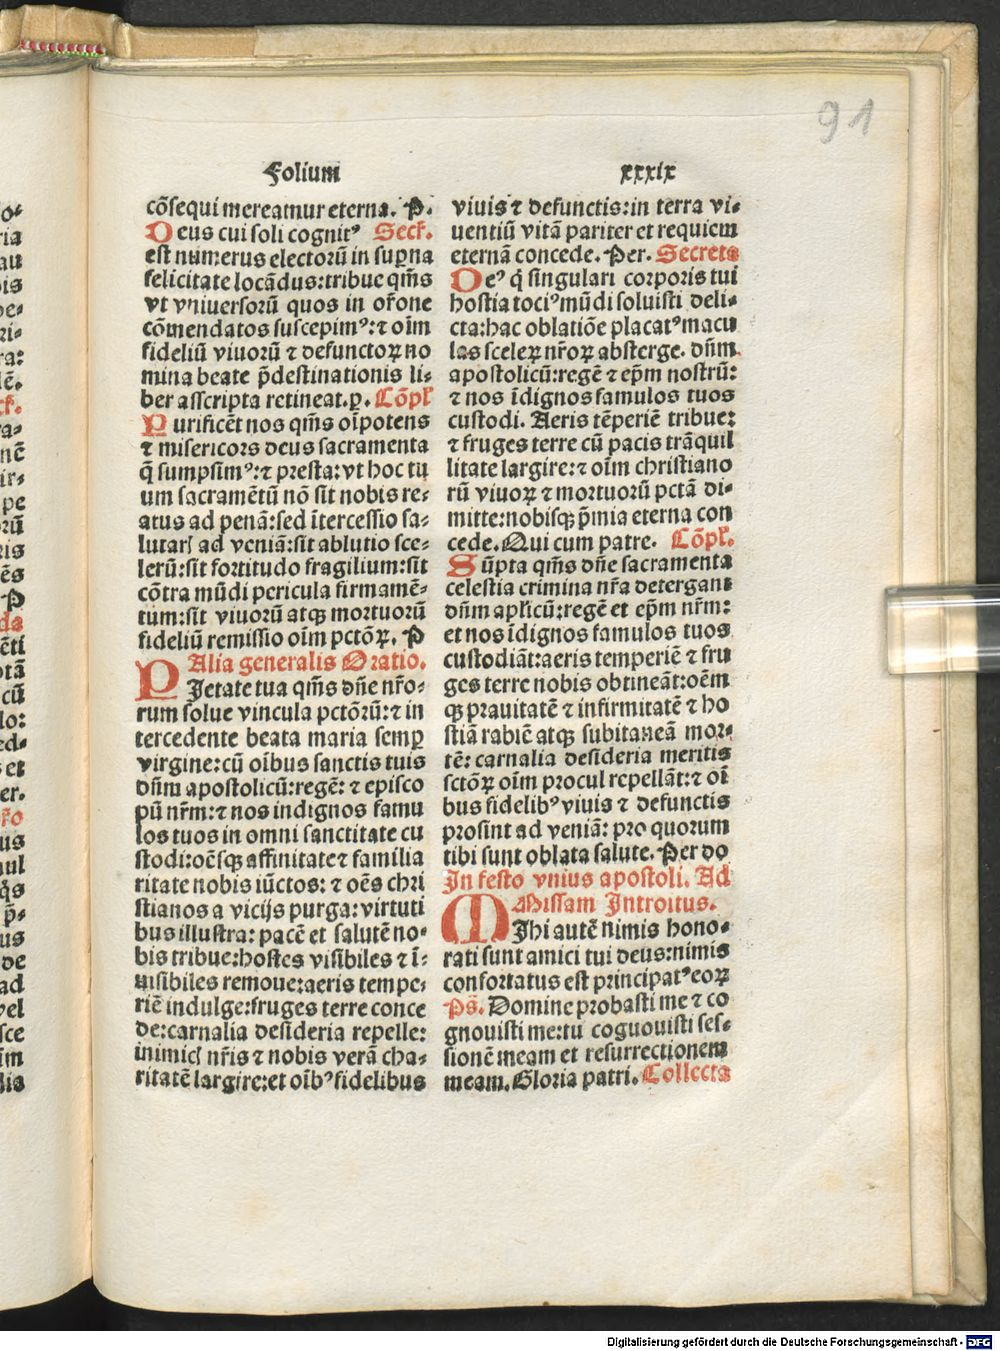 91
Folium xxxix
cōsequi mereamur eterna. P.
Deus cui soli cognitꝰ Secr̄.
est numerus electorū in suꝑna
felicitate locādus: tribue qm̄s
vt vniuersorū quos in or̄one
cōmendatos suscepimꝰ: ⁊ oīm
fideliū viuorū ⁊ defunctoꝝ no
mina beate p̄destinationis li-
ber asscripta retineat. ꝑ. Cōpl̄
Purificēt nos qm̄s oīpotens
⁊ misericors deus sacramenta
q̄ sumpsimꝰ: ⁊ presta: vt hoc tu
um sacramētū nō sit nobis re-
atus ad penā: sed ītercessio sa-
lutarꝭ ad veniā: sit ablutio sce-
lerū: sit fortitudo fragilium: sit
cōtra mūdi pericula firmamē-
tum: sit viuorū atqꝫ mortuorū
fideliū remissio oīm pctōꝝ. P
Alia generalis Oratio.
PIetate tua qm̄s dn̄e nr̄o-
rum solue vincula pctōrū: ⁊ in
tercedente beata maria semꝑ
virgine: cū oībus sanctis tuis
dn̄m apostolicū: regē: ⁊ episco
pū nr̄m: ⁊ nos indignos famu
los tuos in omni sanctitate cu
stodi: oēsqꝫ affinitate ⁊ familia
ritate nobis iūctos: ⁊ oēs chri
stianos a vicijs purga: virtuti
bus illustra: pacē et salutē no-
bis tribue: hostes visibiles ⁊ ī-
uisibiles remoue: aeris tempe-
riē indulge: fruges terre conce
de: carnalia desideria repelle:
inimicꝭ nr̄is ⁊ nobis verā cha-
ritatē largire: et oībꝰ fidelibus
viuis ⁊ defunctis: in terra vi-
uentiū vitā pariter et requiem
eternā concede. Per. Secreta
Deꝰ q̄ singulari corporis tui
hostia tociꝰ mūdi soluisti deli-
cta: hac oblatiōe placatꝰ macu
las sceleꝝ nr̄oꝝ absterge. dn̄m
apostolicū: regē ⁊ ep̄m nostrū:
⁊ nos īdignos famulos tuos
custodi. Aeris tēperiē tribue:
⁊ fruges terre cū pacis trāquil
litate largire: ⁊ oīm christiano
rū viuoꝝ ⁊ mortuorū pctā di-
mitte: nobisqꝫ p̄mia eterna con
cede. Qui cum patre. Cōpl̄.
Sūpta qm̄s dn̄e sacramenta
celestia crimina nr̄a detergant
dn̄m apl̄icū: regē et ep̄m nr̄m:
et nos īdignos famulos tuos
custodiāt: aeris temperiē ⁊ fru
ges terre nobis obtineāt: oēm
qꝫ prauitatē ⁊ infirmitatē ⁊ ho
stiā rabiē atqꝫ subitaneā mor-
tē: carnalia desideria meritis
sctōꝝ oīm procul repellāt: ⁊ oī
bus fidelibꝰ viuis ⁊ defunctis
prosint ad veniā: pro quorum
tibi sunt oblata salute. Per do
In festo vnius apostoli. Ad
Missam Introitus.
MIhi autē nimis hono-
rati sunt amici tui deus: nimis
confortatus est principatꝰ eoꝝ
Ps̄. Domine probasti me ⁊ co
gnouisti me: tu coguouisti ses-
sionē meam et resurrectionem
meam. Gloria patri. Collecta
Digitalisierung gefördert durch die Deutsche Forschungsgemeinschaft - DFG